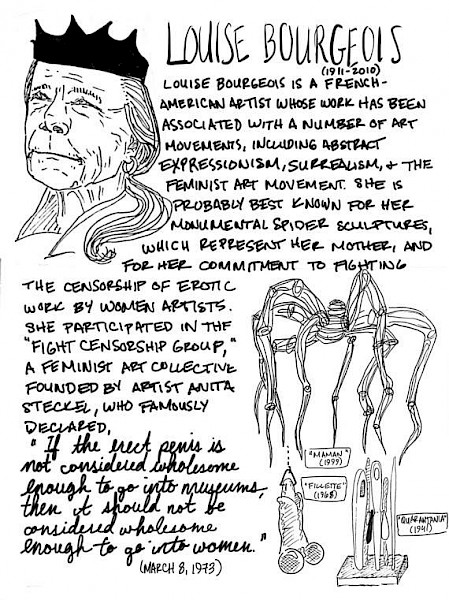 LOUISE BOURGEOIS
(1911-2010)
LOUISE BOURGEOIS IS A FRENCH-
AMERICAN ARTIST WHOSE WORK HAS BEEN
ASSOCIATED WITH A NUMBER OF ART
MOVEMENTS, INCLUDING ABSTRACT
EXPRESSIONISM, SURREALISM, + THE
FEMINIST ART MOVEMENT. SHE IS
PROBABLY BEST KNOWN FOR HER
MONUMENTAL SPIDER SCULPTURES,
WHICH REPRESENT HER MOTHER, AND
FOR HER COMMITMENT TO FIGHTING
THE CENSORSHIP OF EROTIC
WORK BY WOMEN ARTISTS.
SHE PARTICIPATED IN THE
"FIGHT CENSORSHIP GROUP,"
A FEMINIST ART COLLECTIVE
FOUNDED BY ARTIST ANITA
STECKEL, WHO FAMOUSLY
DECLARED,
"If the erect penis is
not considered wholesome
enough to go into museums,
then it should not be
considered wholesome
enough to go into women."
(MARCH 8, 1973)
"MAMAN"
(1999)
"FILLETTE"
(1968)
"QUARANTANIA"
(1941)